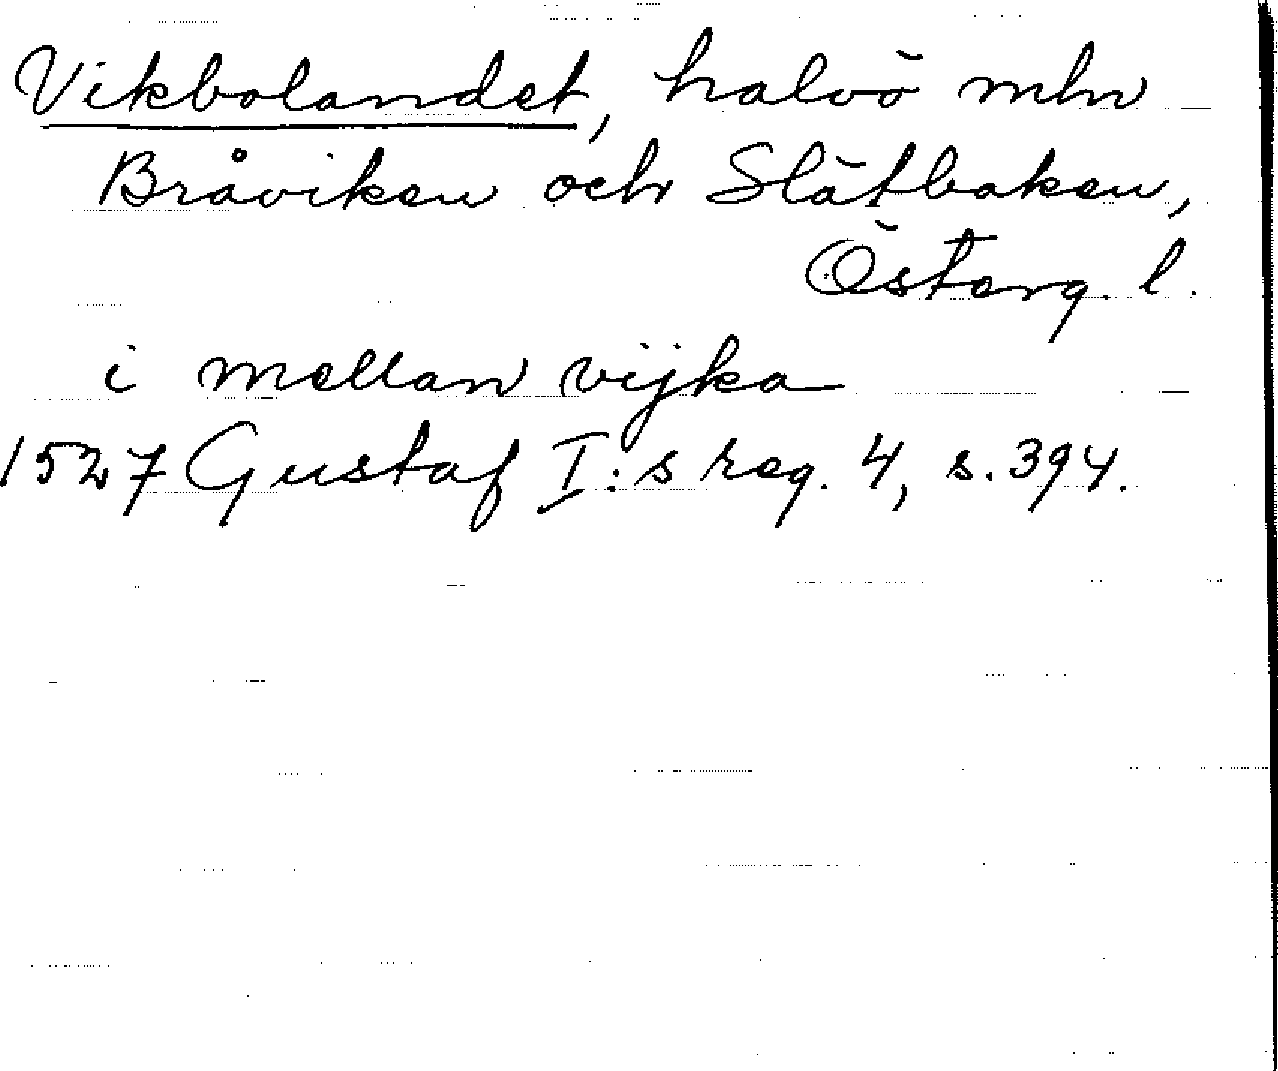 Vikbolandet, halvö mln
Bråviken och Slätbaken,
Österg. l.
i mellan vijka
1527 Gustaf I:s reg. 4, s. 394.